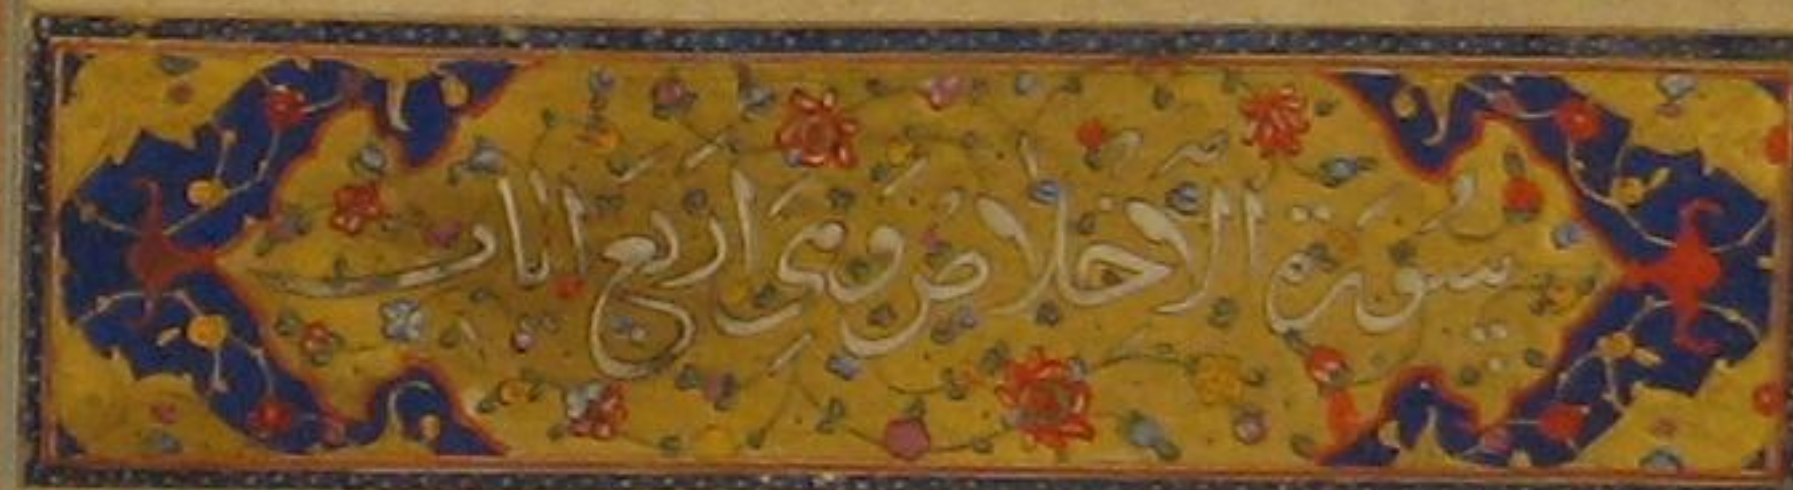 سُورَةُ الْاِخْلَاصِ وَهِیَ اَرْبَعُ اٰیَاتٍ